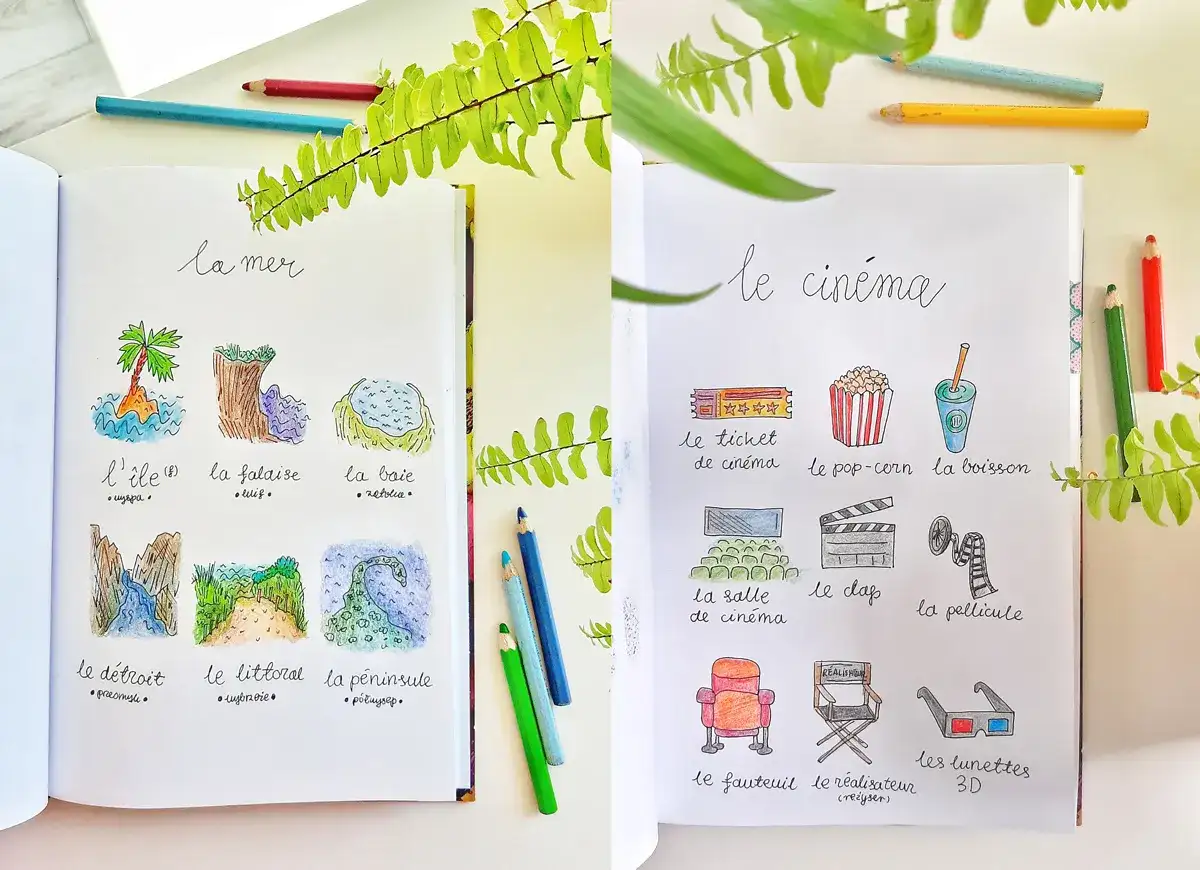 la mer
l'île (f)
• wyspa •
la falaise
• klif •
la baie
• zatoka •
le détroit
• przesmyk •
le littoral
• wybrzeże •
la péninsule
• półwysep •
le cinéma
le ticket
de cinéma
le pop-corn
la boisson
la salle
de cinéma
le clap
la pellicule
le fauteuil
RÉALISATEUR
le réalisateur
(reżyser)
les lunettes
3D